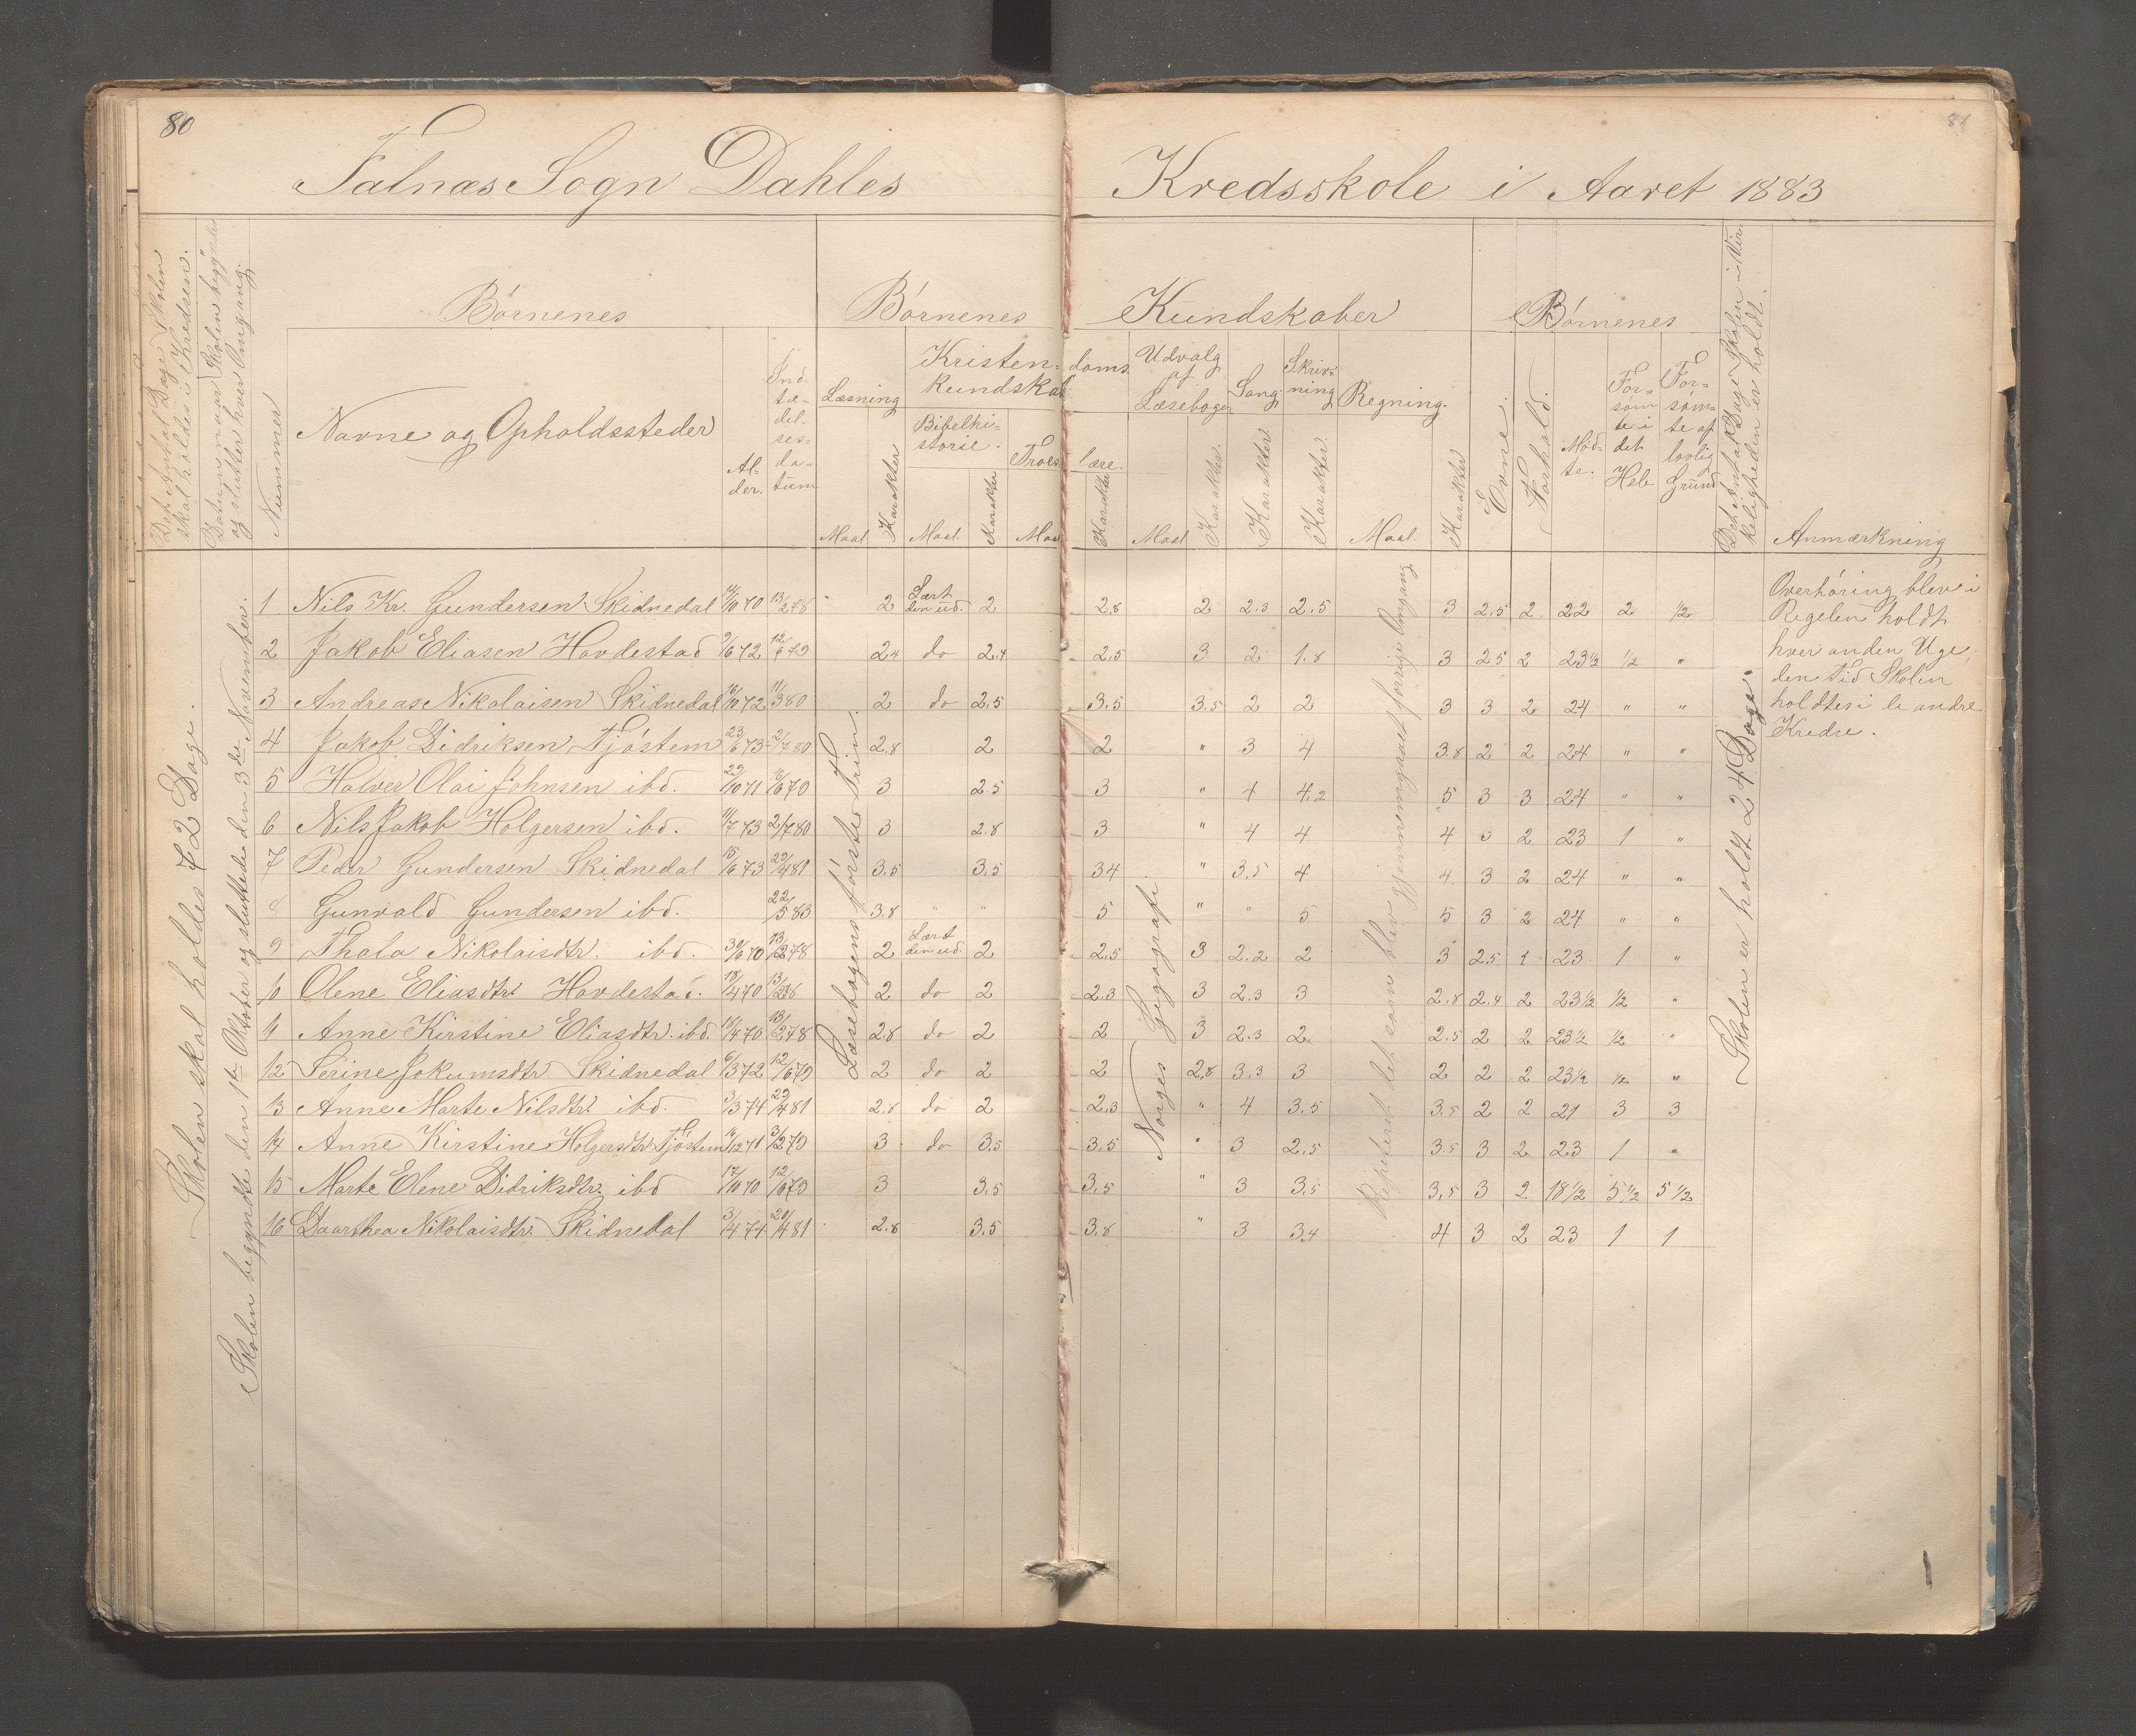 80
81
Falnæs Sogn Dahles Kredsskole i Aaret 1883
Det Antal Dage Skolen skal holdes i Kredsen.
Datum naar Skolen begynder og slutter hver Omgang.
Nummer
Børnenes
Navne og Opholdssteder
Al-
der.
Ind-
tæ-
del-
ses-
da-
tum
Børnenes Kundskaber
Læsning
Maal
Karakter
Kristen- doms
kundskab
Bibelhi-
storie.
Maal.
Karakter
Troes lære.
Maal
Karakter
Udvalg
af
Læsebogen
Maal
Karakter.
Sang.
Karakter.
Skriv-
ning
Karakter
Regning.
Maal.
Karakter
Børnenes
Evne.
Forhold.
Mød-
te.
For-
søm
te i
det
Hele
For-
søm-
te af
lovlig
Grund
Det Antal Dage Skolen i Vir-
keligheden er holdt.
Anmærkning
Skolen skal holdes 72 Dage.
Skolen begyndte den 1ste Oktober og sluttede den 3de November.
Læsebogens første Trin.
Norges Geografi.
Repeteret det som blev gjennemgaaet forrige Omgang
Skolen er holdt 24 Dage.
1 Nils Kr. Gundersen Skidnedal 12/10 70 13/2 78 " 2 Lært den ud. 2 2.8 2 2.3 2.5 3 2.5 2 22 2 1/2
2 Jakob Eliasen Hovdestad 9/6 72 12/6 79 2.4 do 2.4 2.5 3 2 1.8 3 2.5 2 23 1/2 1/2 "
3 Andreas Nikolaisen Skidnedal 16/10 72 11/3 80 2 do 2.5 3.5 3.5 2 2 3 3 2 24 " "
4 Jakob Didriksen Tjøstem 23/6 73 2/7 80 2.8 2 2 " 3 4 3.8 2 2 24 " "
5 Halver Olai Johnsen ibd. 22/10 71 16/6 79 3 2.5 3 " 4 4.2 5 3 3 24 " "
6 Nils Jakob Holgersen ibd. 11/7 73 2/7 80 3 2.8 3 " 4 4 4 3 2 23 1 "
7 Peder Gundersen Skidnedal 15/6 73 29/4 81 3.5 3.5 3.4 " 3.5 4 4 3 2 24 " "
8 Gunvald Gundersen ibd. 22/5 83 3.8 " " 5 " " 5 5 3 2 24 " "
9 Thala Nikolaisdtr. ibd. 30/6 70 13/2 78 2 Lært den ud. 2 2.5 3 2.2 2 3 2.5 1 23 1 "
10 Olene Eliasdtr. Hovdestad. 18/4 70 13/2 78 2 do 2 2.3 3 2.3 3 2.8 2.4 2 23 1/2 1/2 "
11 Anne Kirstine Eliasdtr. ibd. 18/4 70 13/2 78 2.8 do 2 2 3 2.3 2. 2.5 2 2 23 1/2 1/2 "
12 Serine Jokumsdtr Skidnedal 6/3 72 12/6 79 2 do 2 2 2.8 3.3 3 2 2 2 23 1/2 1/2 "
13 Anne Marte Nilsdtr. ibd. 3/3 74 29/4 81 2.8 do 2 2.3 " 4 3.5 3.5 2 2 21 3 3
14 Anne Kirstine Holgersdtr. Tjøstem 16/12 71 3/2 79 3 do 3.5 3.5 " 3 2.5 3.5 3 2 23 1 "
15 Marte Elene Didriksdtr. ibd 17/10 70 12/6 79 3 3.5 3.5 " 3 3.5 3.5 3 2 18 1/2 5 1/2 5 1/2
16 Daarthea Nikolaisdtr. Skidnedal 3/4 74 29/4 81 2.8 3.5 3.8 " 3 3.4 4 3 2 23 1 1
Overhøring blev i
Regelen holdt
hver anden Uge,
den tid Skolen
holdtes i de andre
Kredse.